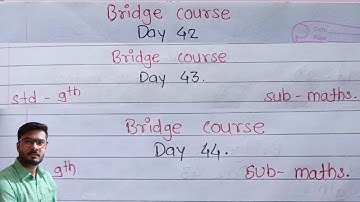 Bridge course
Day 42
Bridge course
Day 43.
std - 9th sub - maths.
Bridge course
Day 44.
9th sub - maths.